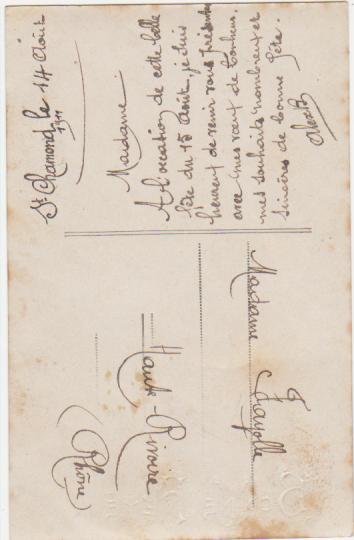 St Chamond, le 14 Août
1911
Madame
A l'occasion de cette belle
fête du 15 Août, je suis
heureux de venir vous présenter
avec mes vœux de bonheur,
mes souhaits nombreux et
sincères de bonne fête.
Madame Fayolle
Haute-Rivoire
(Rhône)